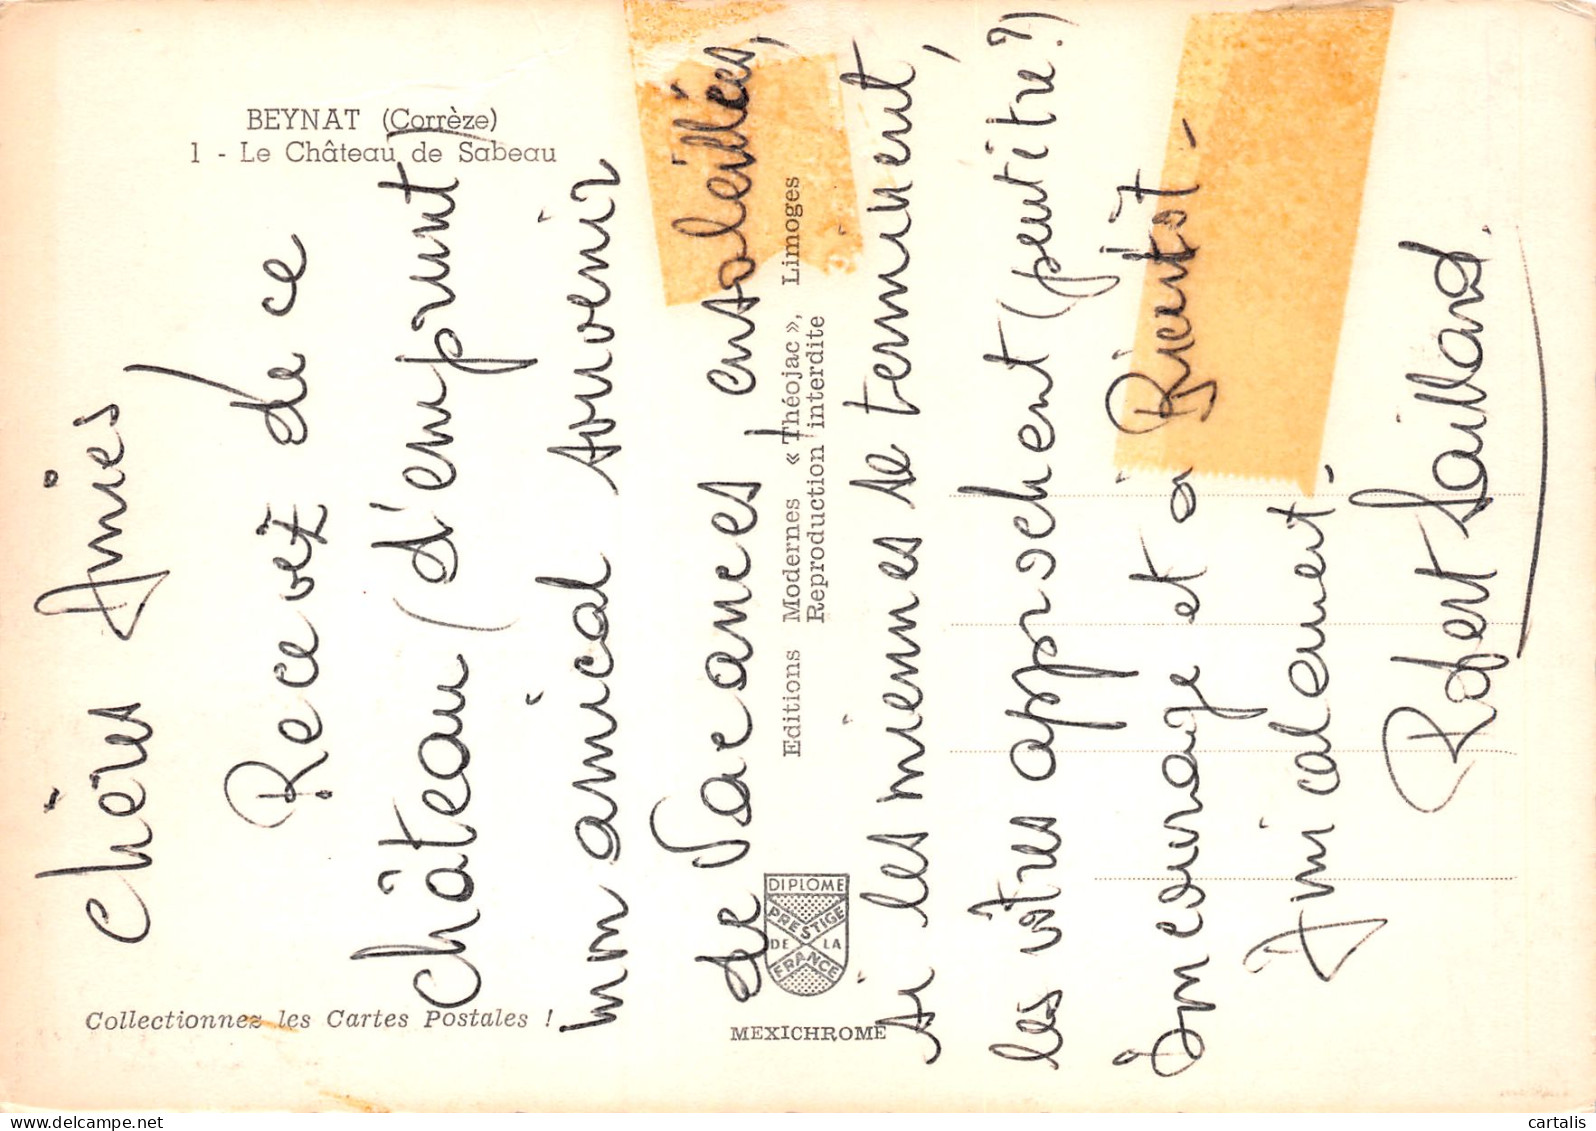 BEYNAT (Corrèze)
1 - Le Château de Sabeau
Chers Amies
Recevez de ce
château (d'emprunt)
mon amical souvenir
de Vacances, ensoleillées,
si les miennes se terminent,
les vôtres approchent (peut être?)
Bon courage et à Bientôt -
Amicalement -
Robert Saillard.
Editions Modernes « Théojac », Limoges
Reproduction interdite
DIPLOME
PRESTIGE
DE LA
FRANCE
MEXICHROME
Collectionnez les Cartes Postales !
cartalis